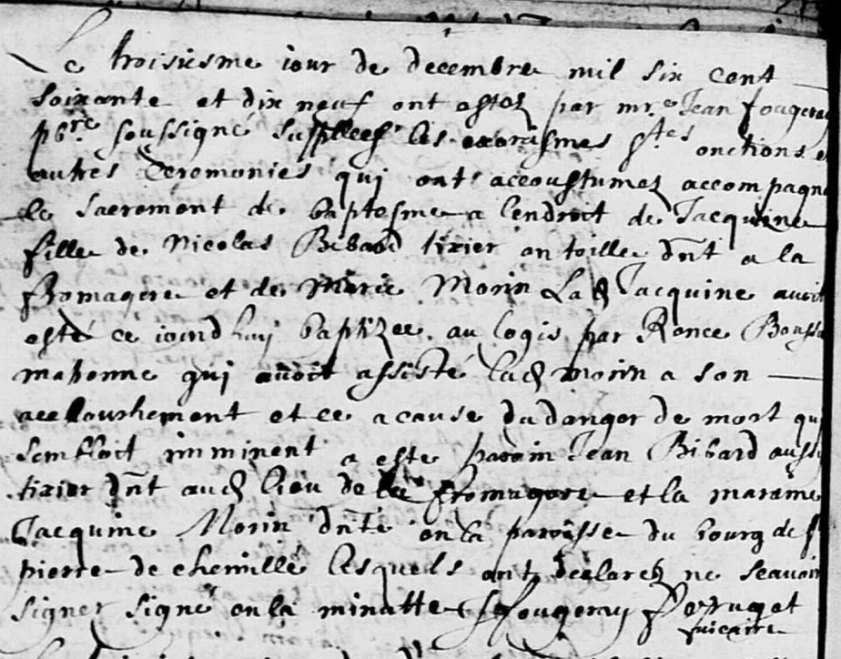 Le troisiesme iour de decembre mil six cent
soixante et dix neuf ont estez par mre Jean fougeray
pbre soussigné supplees les exorismes stes onctions et
autres Ceremonies qui ont accoustumez accompagne
le sacrement de baptesme a lendroit de Jacquine
fille de Nicolas Bibard tixier en toille dnt a la
fromagere et de Marie Morin Lad Jacquine avoit
esté ce iourdhuy baptizee au logis par Renee
matronne qui avoit assisté lad morin a son
accoushement et ce a cause du danger de mort qui
sembloit imminent a este parain Jean Bibard aussi
tixier dnt aud lieu de la fromagere et la maraine
Jacquine Morin dnte en la paroisse du bourg de st
pierre de chemillé lesquels ont declarez ne scavoir
signer signé en la minutte J fougeray
vicaire